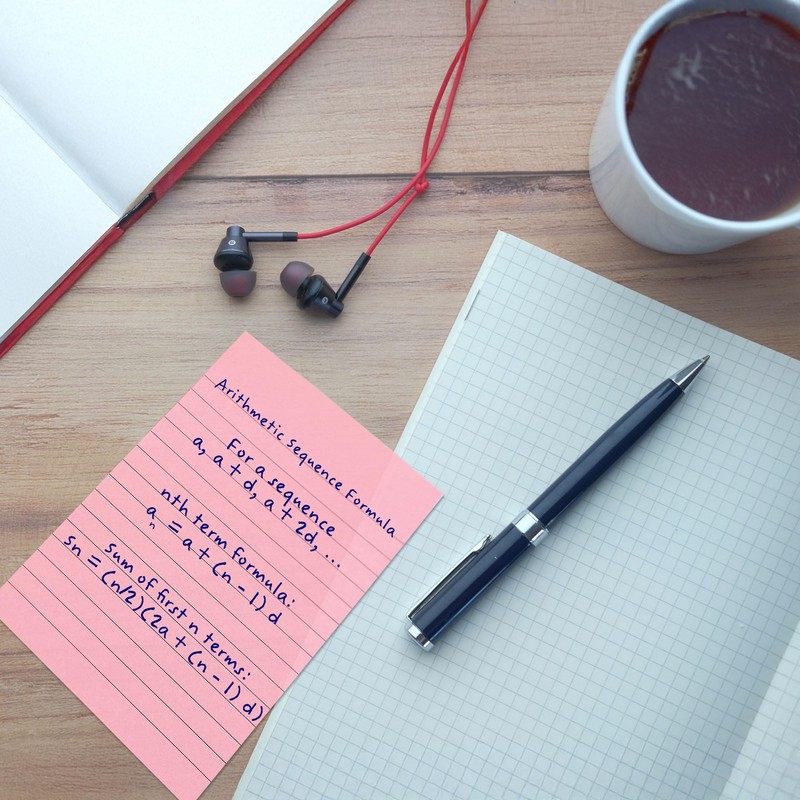 Arithmetic Sequence Formula
For a sequence
a, a + d, a + 2d, ...
nth term formula:
aₙ = a + (n - 1) d
sum of first n terms:
Sn = (n/2)(2a + (n - 1) d)